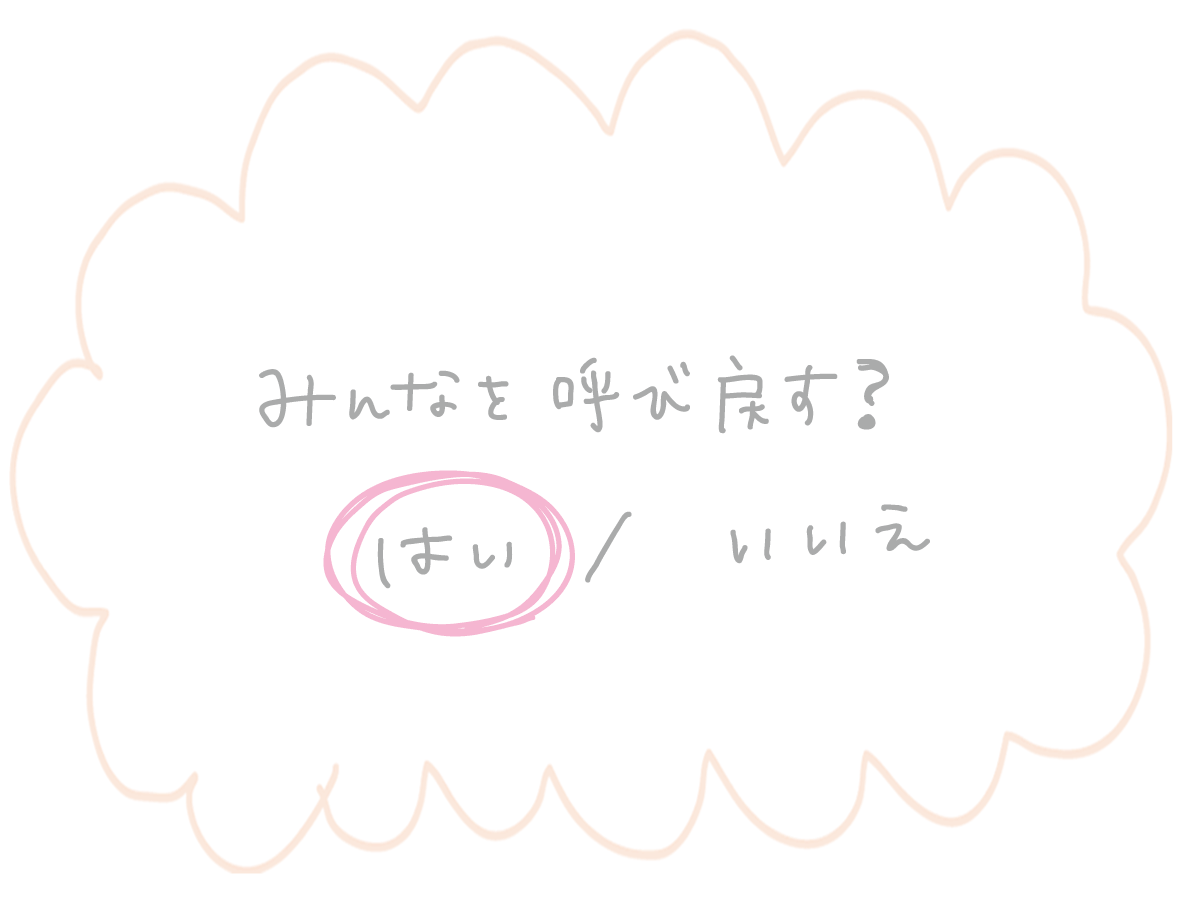 みんなを呼び戻す?
はい / いいえ